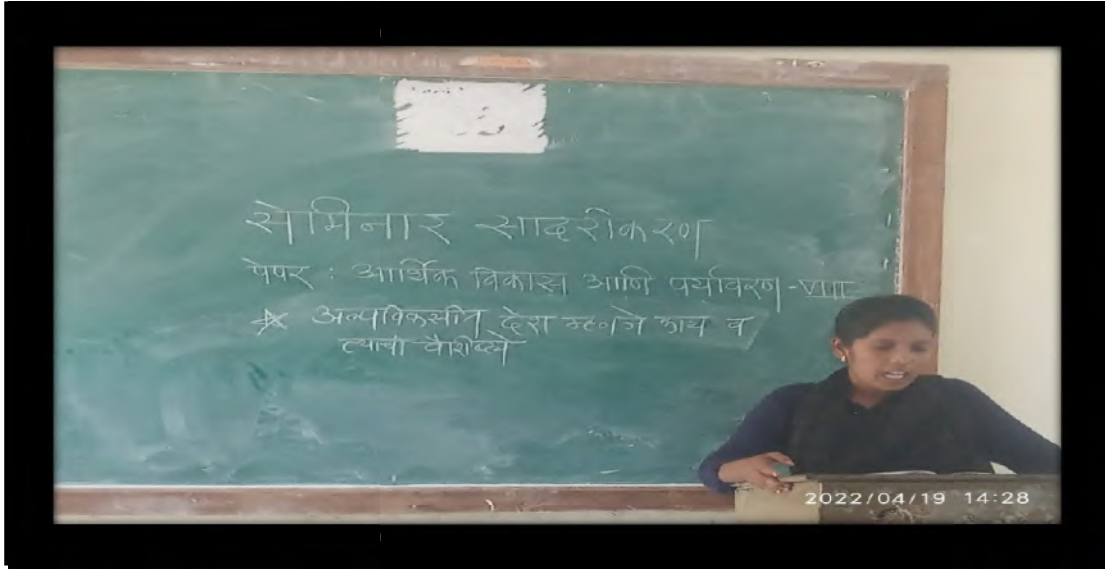 सेमिनार सादरीकरण
पेपर : आर्थिक विकास आणि पर्यावरण - VIII
* अल्पविकसीत देश म्हणजे काय व
त्याची वैशिष्ट्ये
2022/04/19 14:28